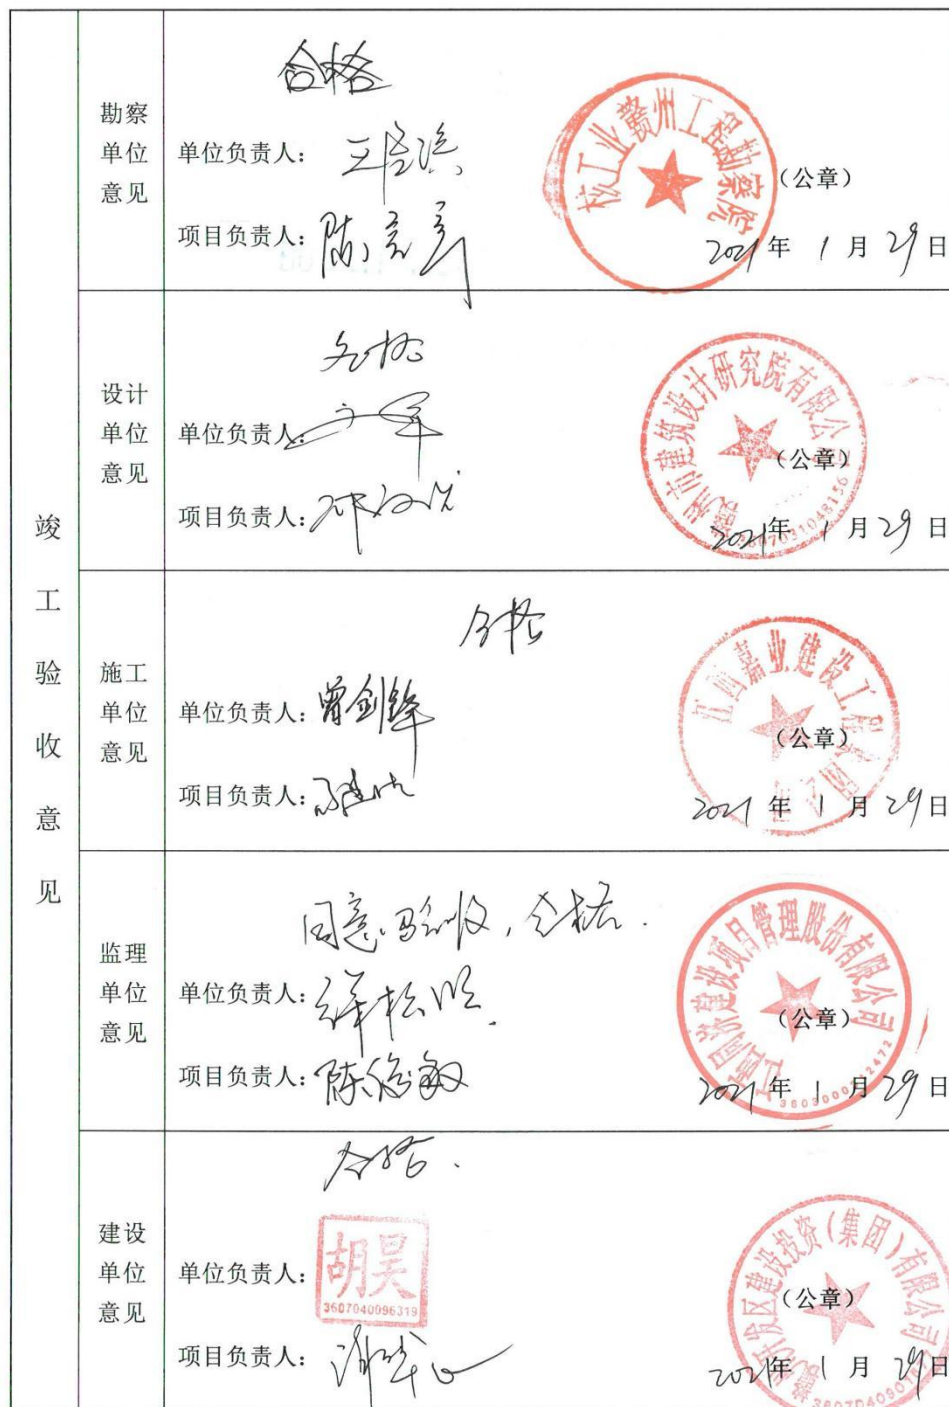 竣工验收意见
勘察单位意见
合格
单位负责人：
项目负责人：
核工业赣州工程勘察院
（公章）
2021年 1月29日
设计单位意见
合格
单位负责人
项目负责人：
赣州市建筑设计研究院有限公司
（公章）
2021年 1月29日
施工单位意见
合格
单位负责人：曾剑锋
项目负责人：
江西嘉业建设工程有限公司
（公章）
2021年 1月29日
监理单位意见
同意验收，合格.
单位负责人：
项目负责人：陈俊敏
建设项目管理股份有限公司
（公章）
2021年 1月29日
建设单位意见
合格.
单位负责人：
胡昊
3607040096319
项目负责人：
开发区建设投资（集团）有限公司
（公章）
2021年 1月29日